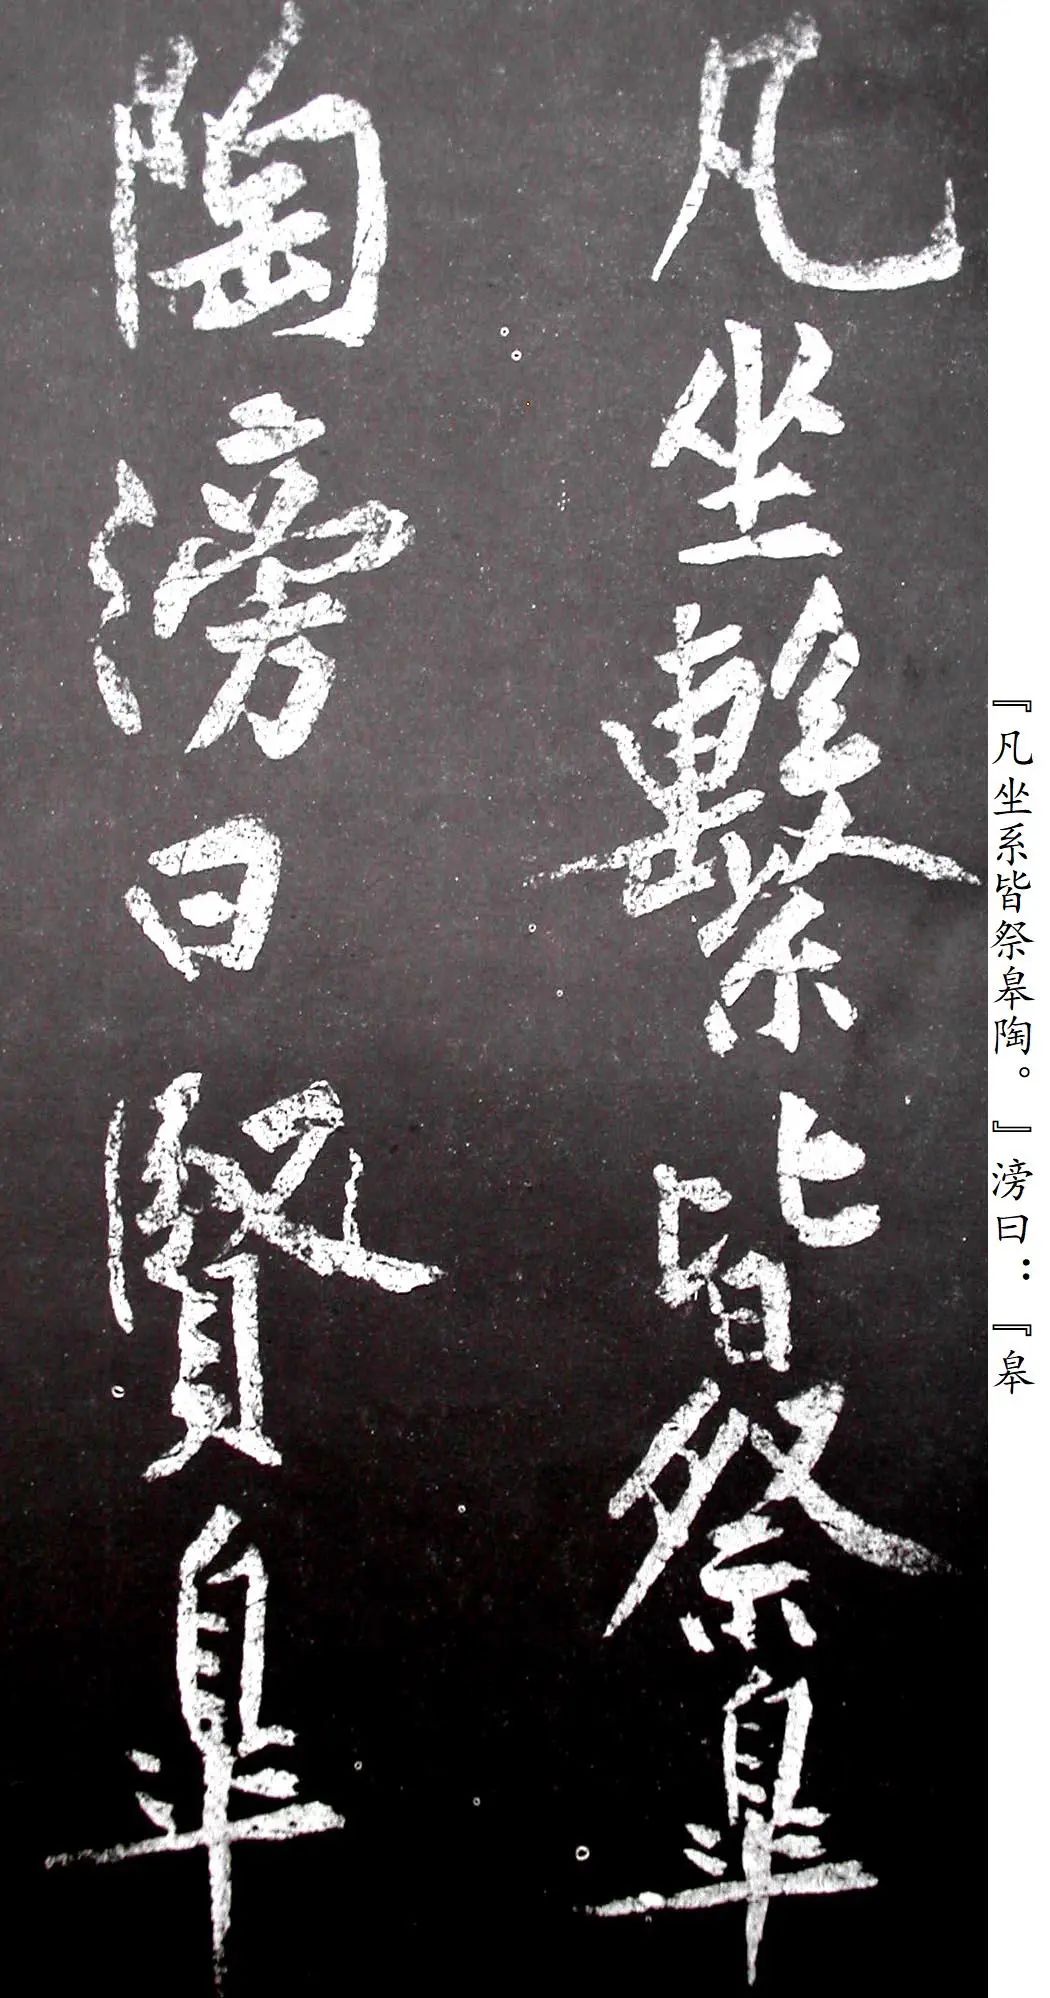 凡坐繫皆祭皐
陶滂曰賢皐
『凡坐系皆祭皋陶。』滂曰：『皋